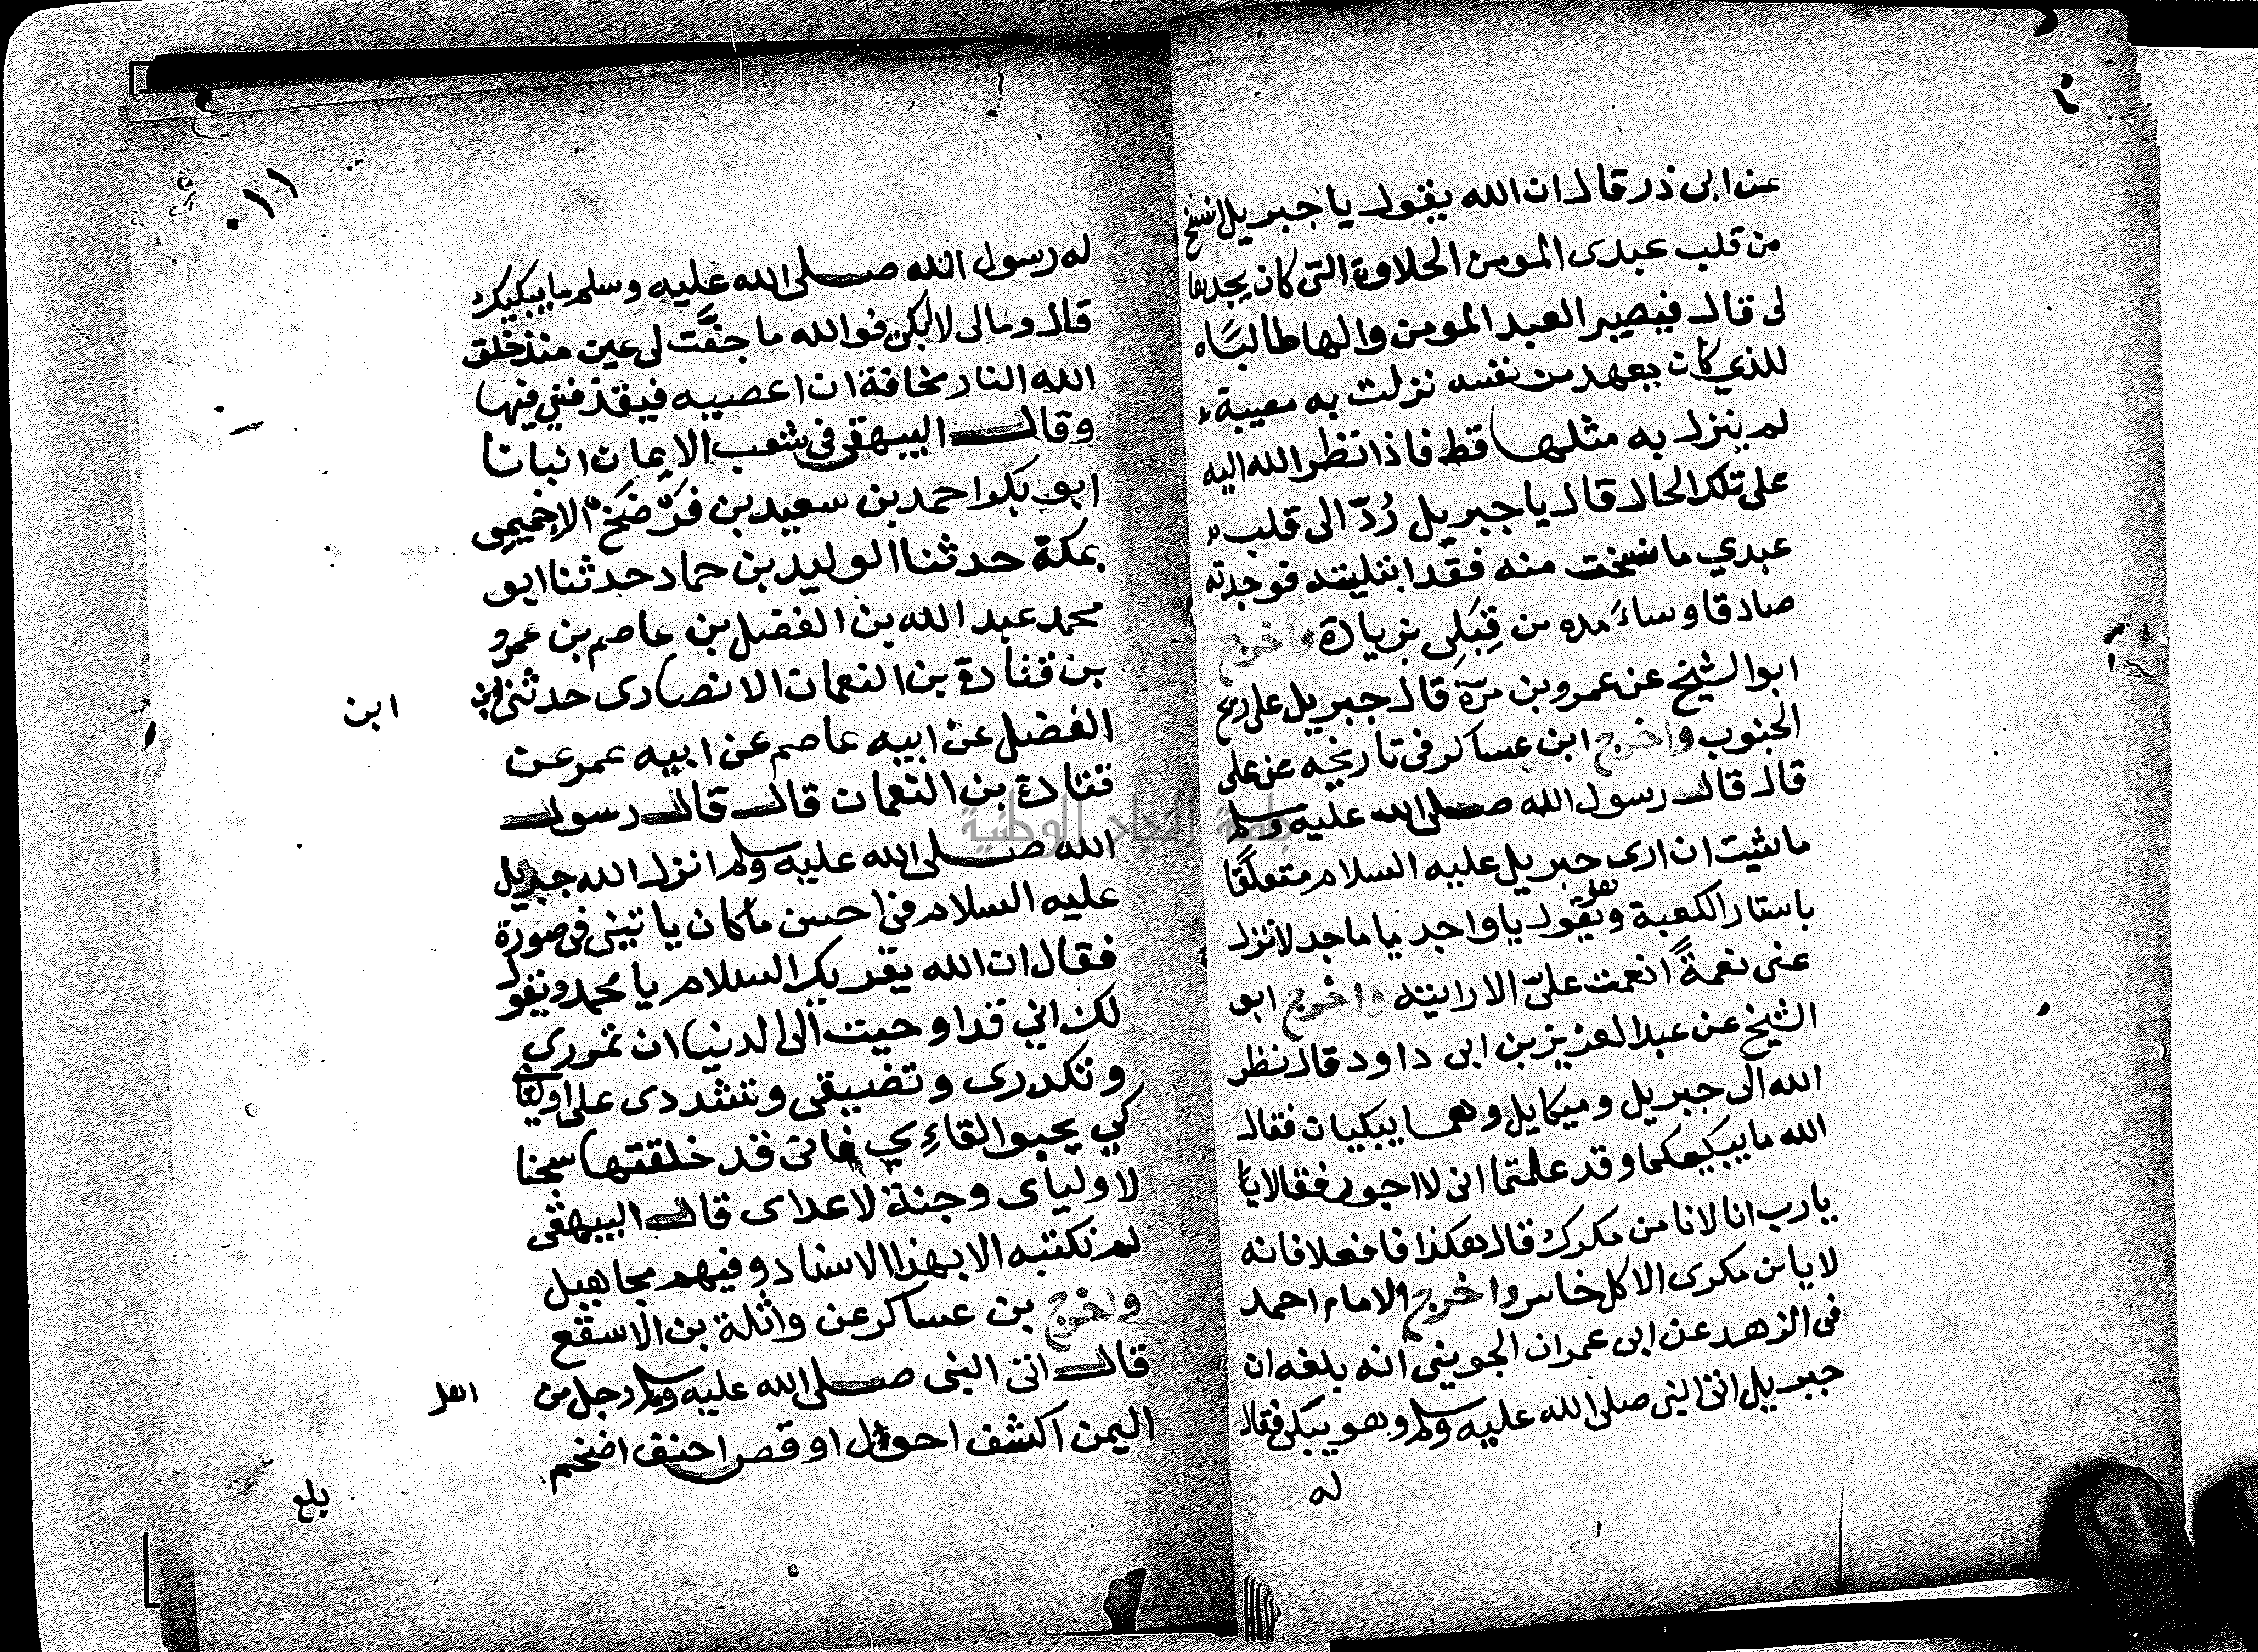 عن ابى ذر قال ان الله يقول يا جبريل انسخ
من قلب عبدى المومن الحلاوة التى كان يجدها
لى قال فيصير العبد المومن والها طالبا
للذي كان يعهد من نفسه نزلت به مصيبة
لم ينزل به مثلها قط فاذا نظر الله اليه
على تلك الحال قال يا جبريل رُدّ الى قلب
عبدي ما نسخت منه فقد ابتليته فوجدته
صادقا وساءمده من قِبَلِى بزيادة واخرج
ابو الشيخ عن عمرو بن مرّة قال جبريل على ريح
الجنوب واخرج ابن عساكر فى تاريخه عن على
قال قال رسول الله صلى الله عليه وسلم
ماشيت ان ارى جبريل عليه السلام متعلقا
باستار الكعبة وهو يقول يا واحد يا ماجد لا تزل
عنى نعمةً انعمت علىّ الا رايته واخرج ابو
الشيخ عن عبد العزيز بن ابى داود قال نظر
الله الى جبريل وميكايل وهما يبكيان فقال
الله ما يبكيكما وقد علمتما انى لا اجور فقالا يا
يا رب انا لا نامن مكرك قال هكذا فافعلا فانه
لا يامن مكرى الا كل خاسر واخرج الامام احمد
فى الزهد عن ابى عمران الجوينى انه بلغه ان
جبريل اتى النبى صلى الله عليه وسلم وهو يبكى فقال
له
١١
له رسول الله صلى الله عليه وسلم ما يبكيك
قال ومالى لا ابكى فوالله ما جفّت لى عين منذ خلق
الله النار مخافة ان اعصيه فيقذفني فيها
وقال البيهقى فى شعب الايمان انبانا
ابو بكر احمد بن سعيد بن فرضخ الاخميمى
بمكة حدثنا الوليد بن حماد حدثنا ابو
محمد عبد الله بن الفضل بن عاصم بن عمرو
بن قتادة بن النعمان الانصارى حدثنى ابى
ابن
الفضل عن ابيه عاصم عن ابيه عمر عن
قتادة بن النعمان قال قال رسول
الله صلى الله عليه وسلم انزل الله جبريل
عليه السلام فى احسن ما كان ياتينى فى صورة
فقال ان الله يقريك السلام يا محمد ويقول
لك اني قد اوحيت الى الدنيا ان تمررى
وتكدرى وتضيقى وتشددى على اوليائى
كي يحبوا لقاءي فانى قد خلقتها سجنا
لاولياى وجنة لاعداى قال البيهقى
لم نكتبه الا بهذا الاسناد وفيهم مجاهيل
واخرج بن عساكر عن واثلة بن الاسقع
قال اتى النبى صلى الله عليه وسلم رجل من
اهل
اليمن اكشف احول اوقص احنف اضخم
بلغ